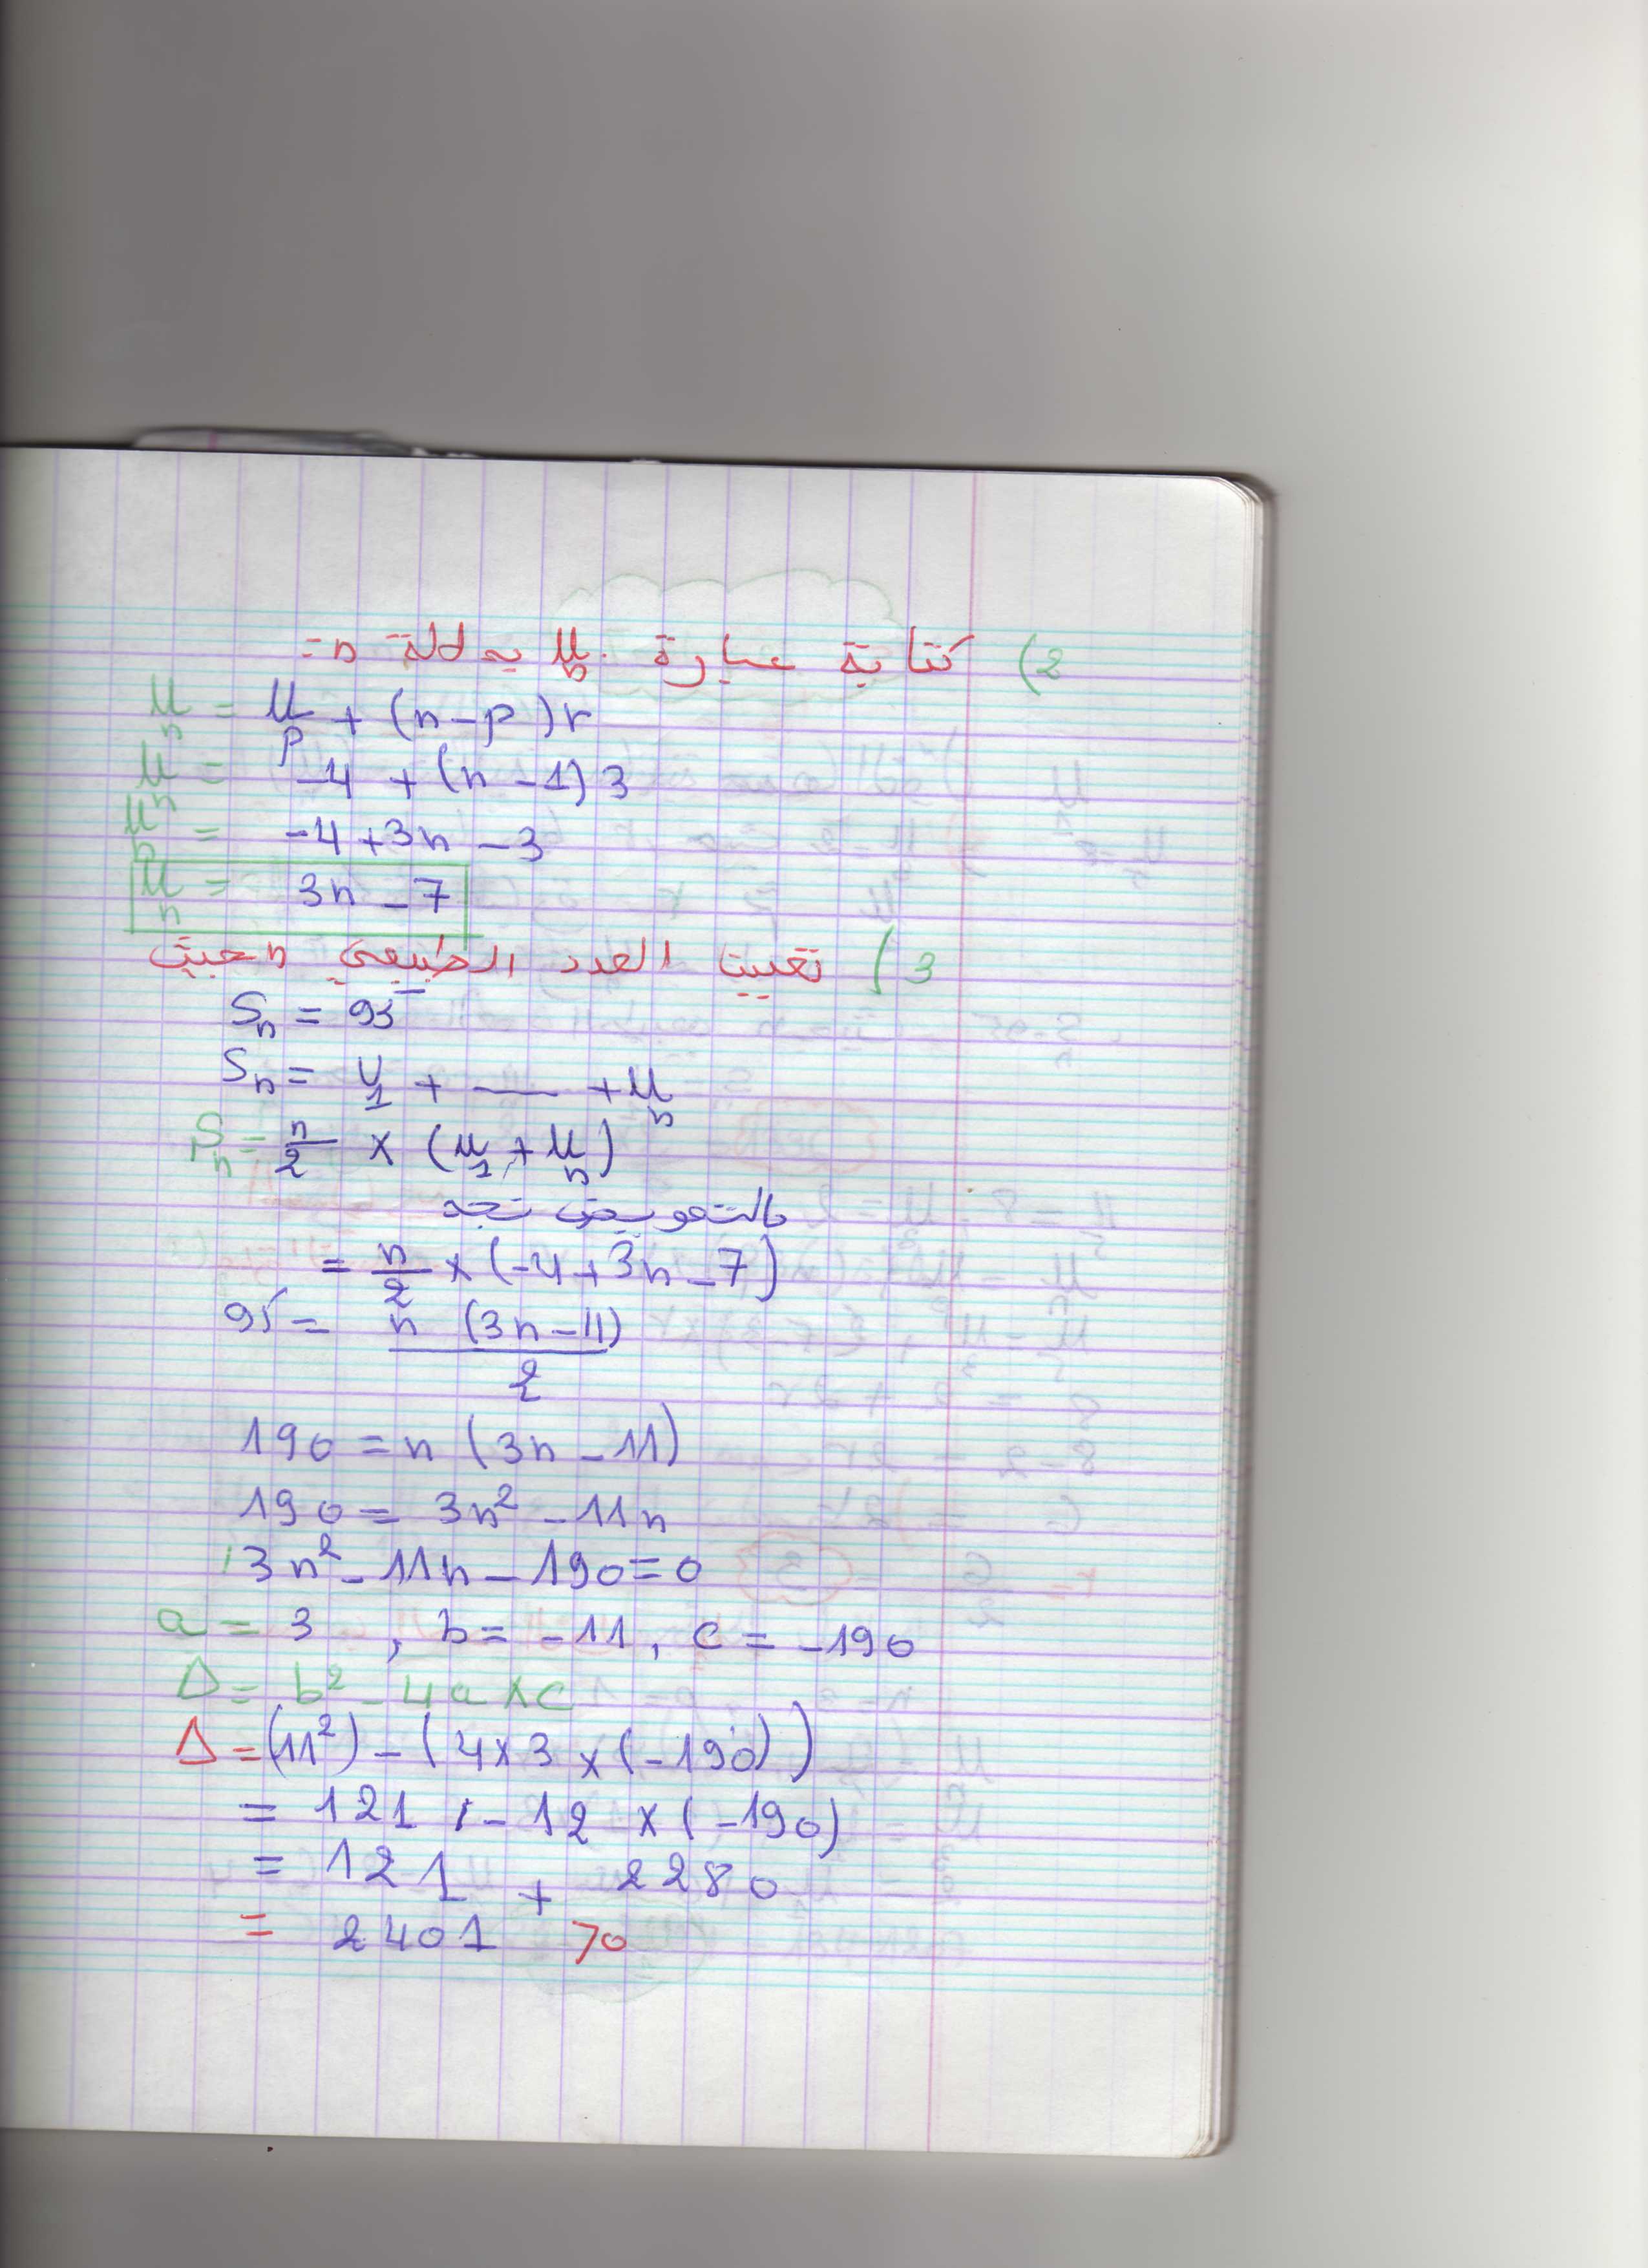 2) كتابة عبارة Uₙ بدلالة n =
Uₙ = U_p + (n-p)r
Uₙ = -4 + (n-1)3
Uₙ = -4+3n-3
Uₙ = 3n-7
3) تعيين العدد الطبيعي n حيث
Sₙ = 95
Sₙ = U₁ + — + Uₙ
Sₙ = n/2 × (U₁+Uₙ)
بالتعويض نجد
= n/2 × (-4+3n-7)
95 = n (3n-11)/2
190 = n (3n-11)
190 = 3n² - 11n
3n² - 11n - 190 = 0
a = 3 , b = -11 , c = -190
Δ = b² - 4a×c
Δ = (11²) - (4×3×(-190))
= 121 - 12 × (-190)
= 121 + 2280
= 2401 >0